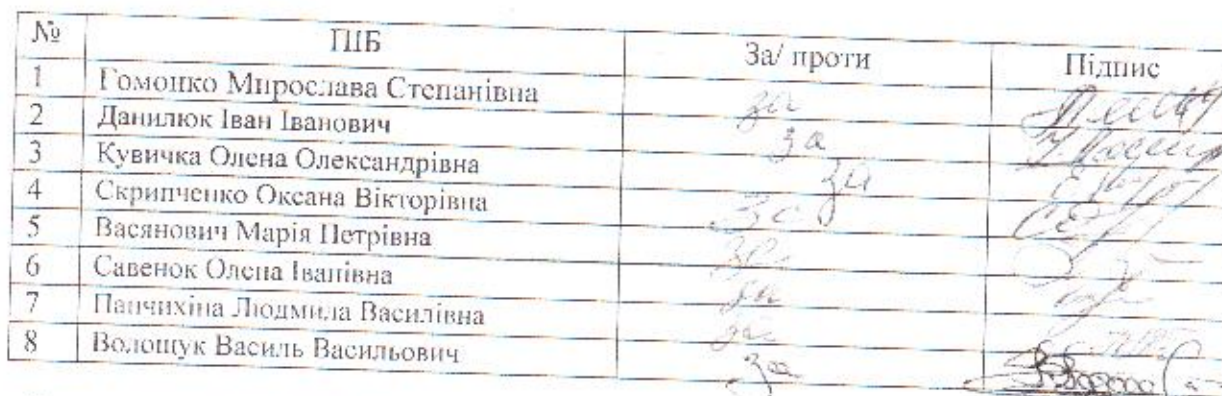 № ПІБ За/ проти Підпис
1 Гомонко Мирослава Степанівна за
2 Данилюк Іван Іванович за
3 Кувичка Олена Олександрівна за
4 Скрипченко Оксана Вікторівна за
5 Васянович Марія Петрівна за
6 Савенок Олена Іванівна за
7 Панчихіна Людмила Василівна за
8 Волощук Василь Васильович за